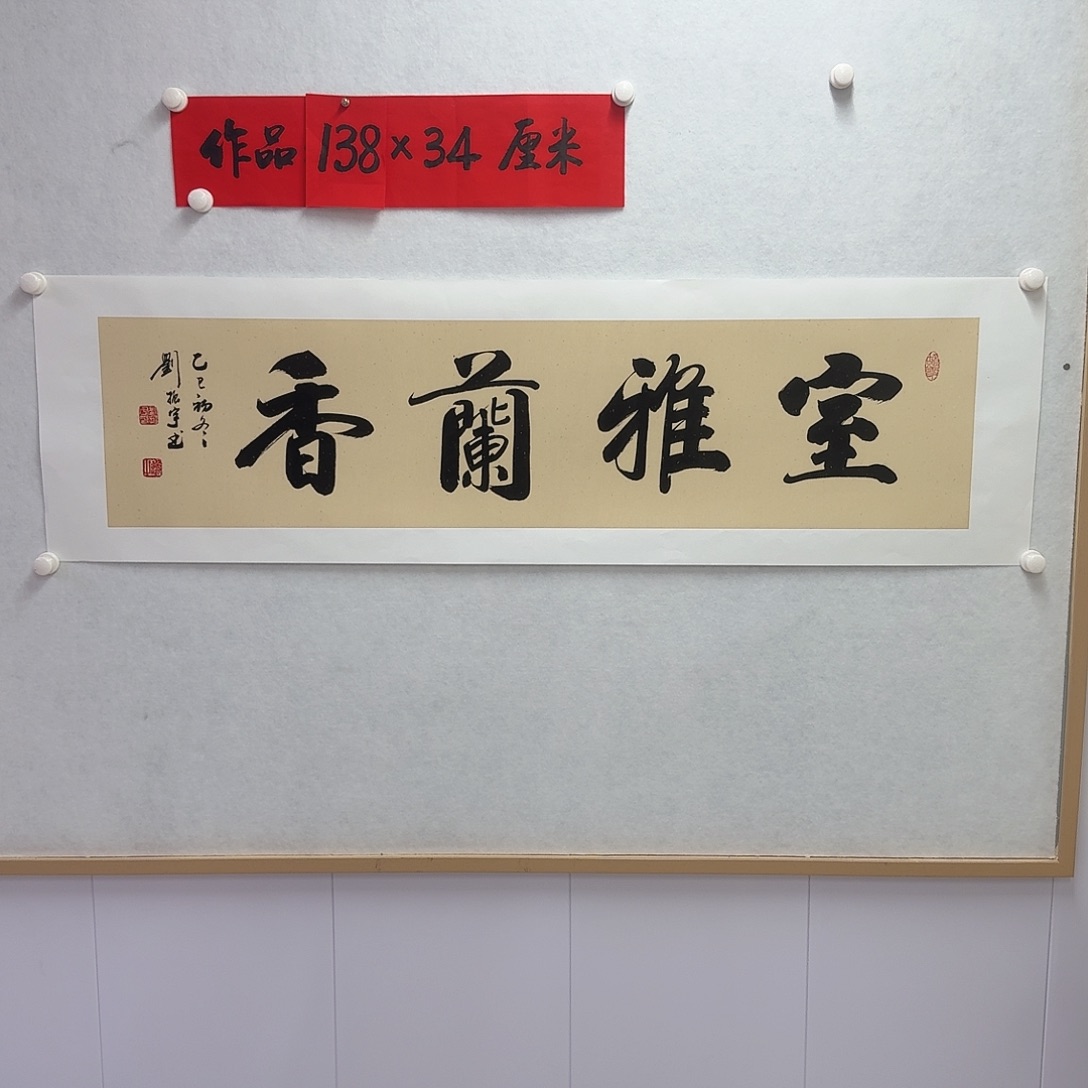 作品 138×34 厘米
室雅蘭香
乙巳初冬
劉振宇書